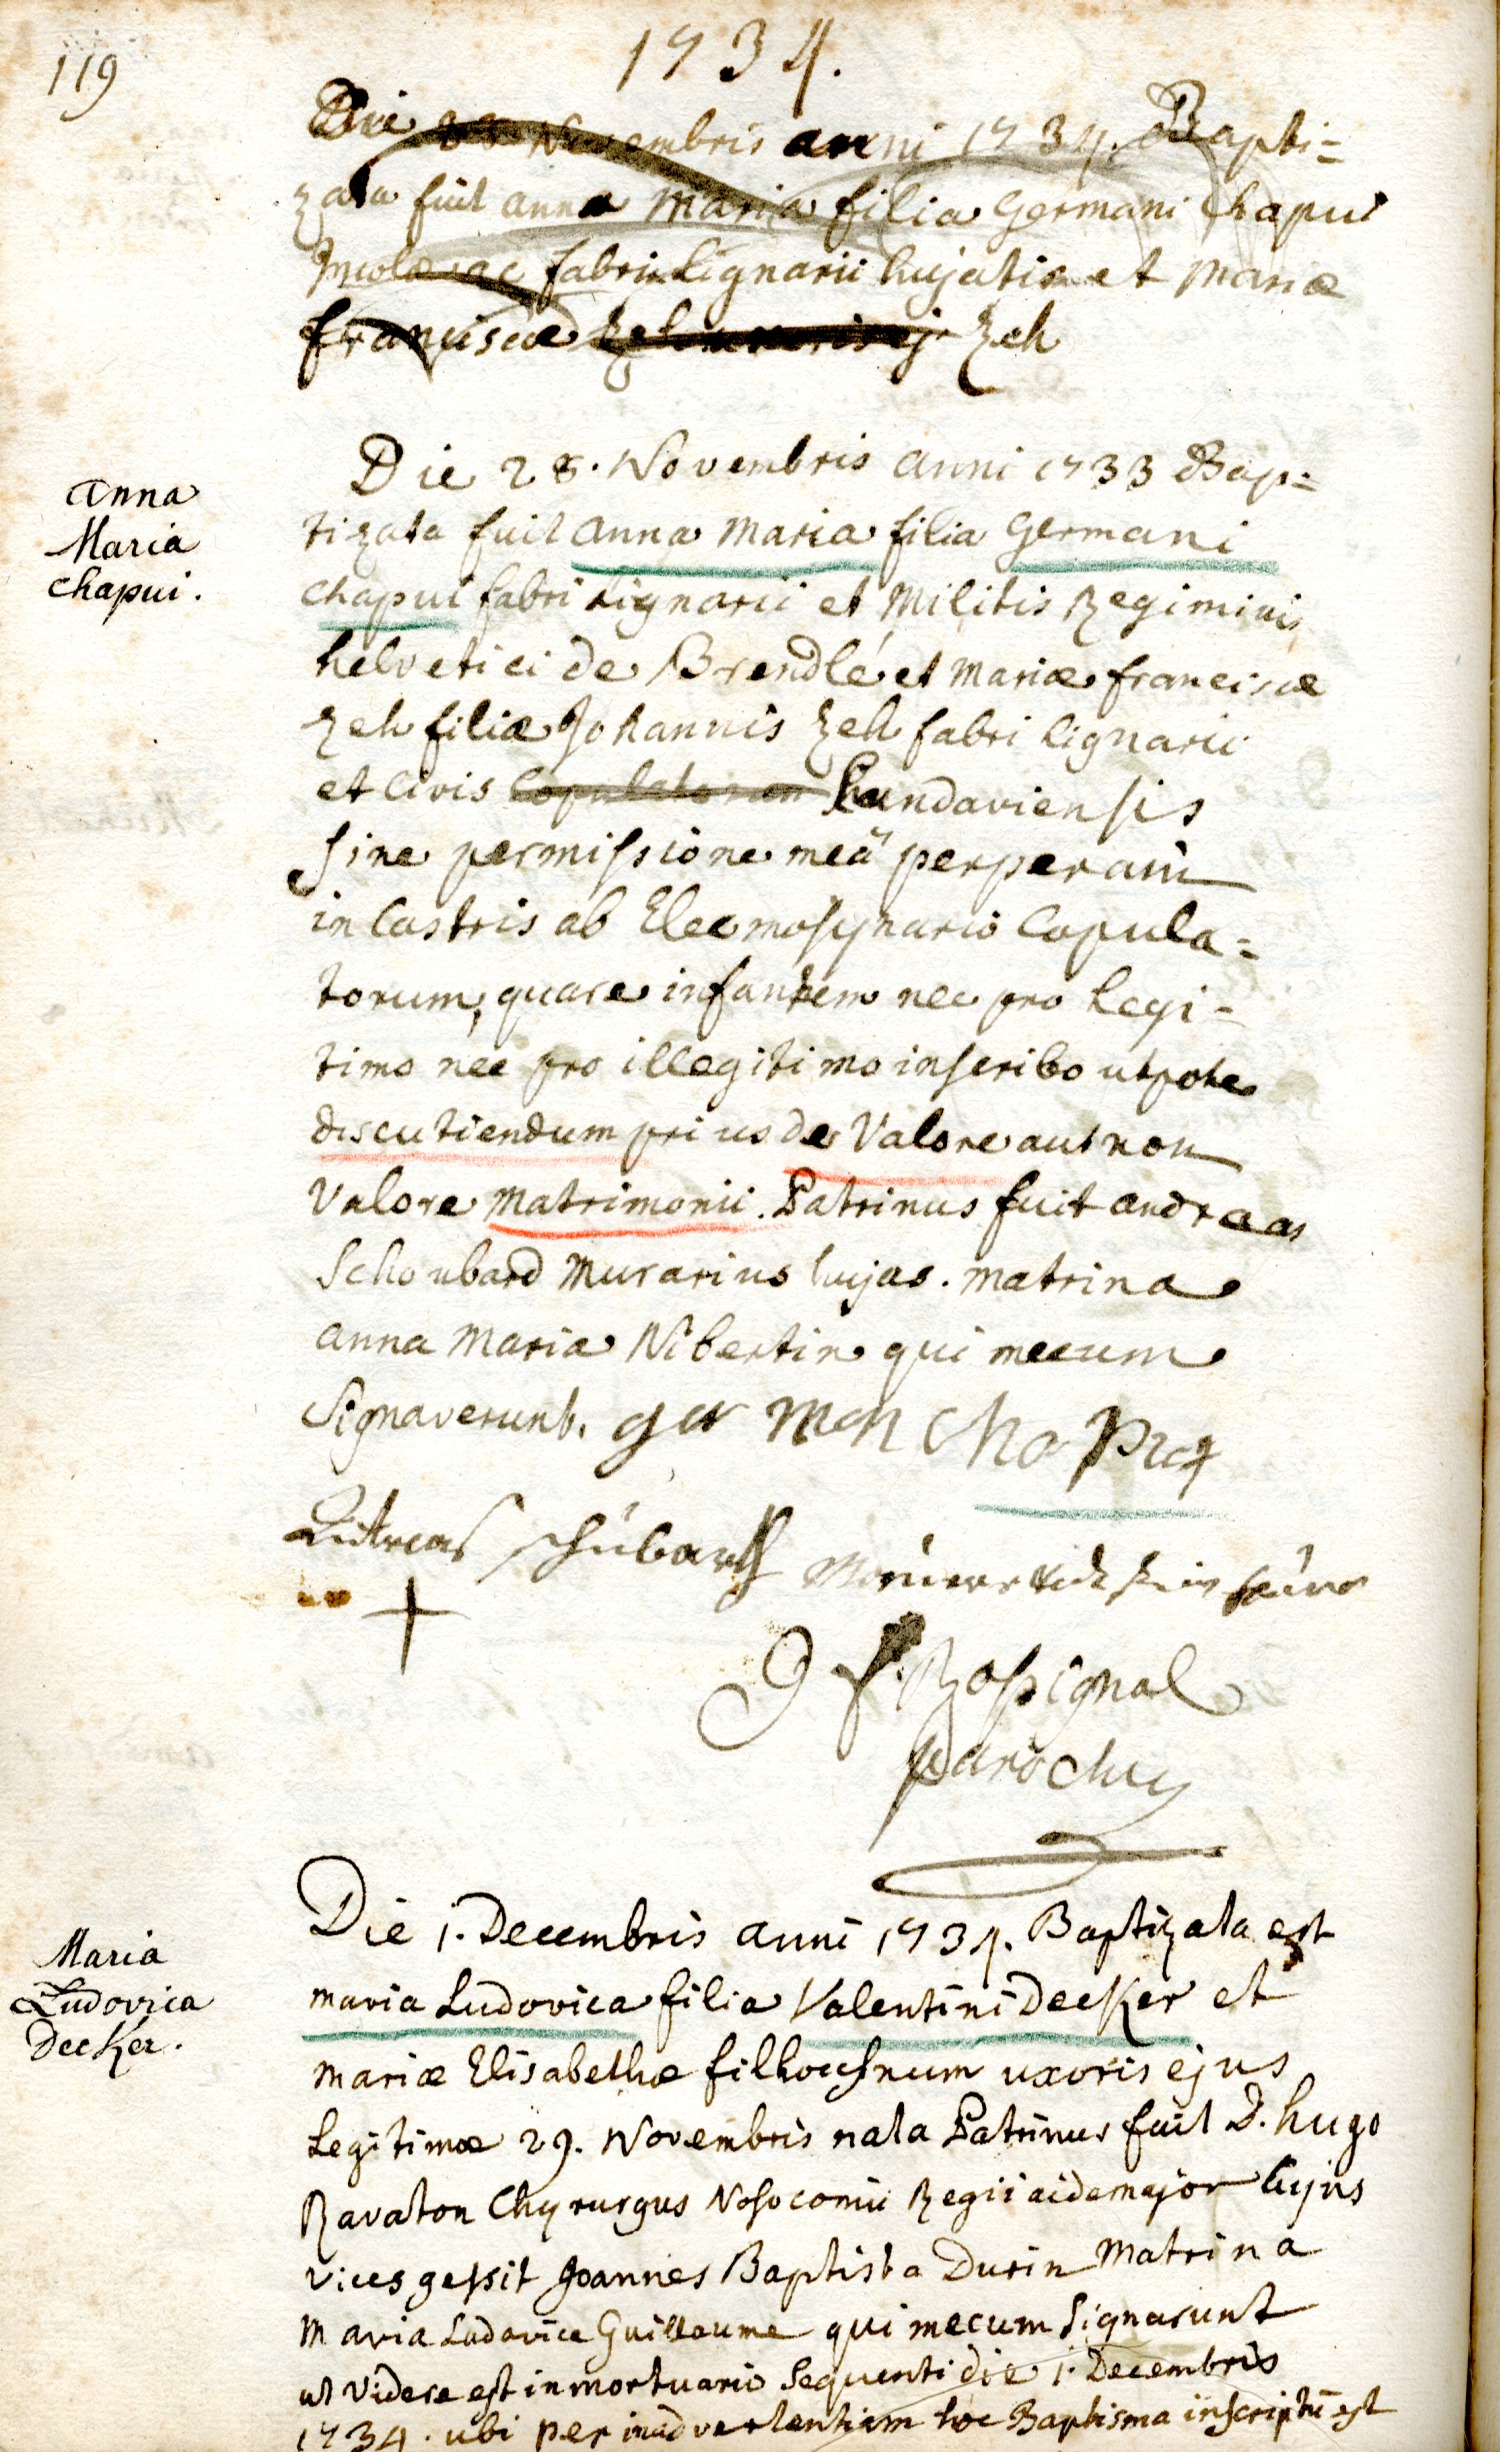 119
1734.
Die 28 Novembris anni 1734. Bapti=
zata fuit anna Maria filia Germani Chapui
Incolae ac fabri Lignarii hujatis et Mariæ
franciscæ Zeh uxoris ej Zeh
Anna
Maria
Chapui.
Die 28. Novembris anni 1733 Bap=
tizata fuit anna Maria filia Germani
Chapui fabri Lignarii et Militis Regiminis
helvetici de Brendlé et Mariæ franciscæ
Zeh filiæ Johannis Zeh fabri Lignarii
et Civis Copulatorum Landaviensis
sine permissione meâ perperam
in Castris ab Eleemosynario Copula=
torum, quare infantem nec pro Legi-
timo nec pro illegitimo inscribo utpote
discutiendum prius de Valore aut non
Valore Matrimonii. Patrinus fuit andreas
Schoubard Murarius hujas. Matrina
anna Maria Nibertin qui mecum
Signaverunt. ger men Cha puy
Andreas Schübart
G f. Rossignol
parochus
Maria
Ludovica
Decker.
Die 1. Decembris anni 1734. Baptizata est
maria Ludovica filia Valentini Decker et
mariæ Elisabethæ filhousnum uxoris ejus
Legitimæ 29. Novembris nata Patrinus fuit D. hugo
Ravaton Chyrurgus Nosocomii Regii aidemajor hujus
vices gessit Joannes Baptista Durin Matrina
Maria Ludovica Guilloume qui mecum Signarunt
ut videre est in mortuario Sequenti die 1. Decembris
1734. ubi per inadvertentiam hoc Baptisma inscriptū est